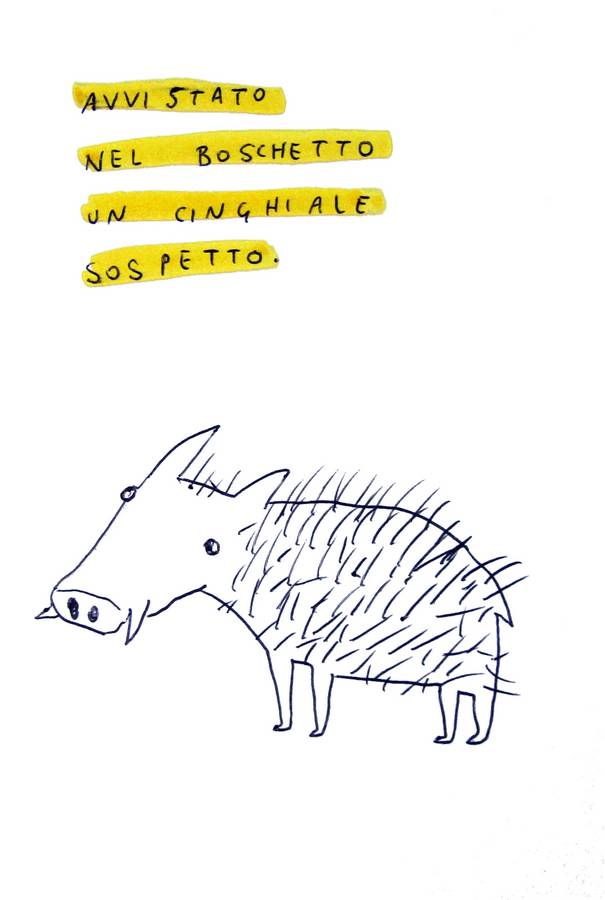 AVVISTATO
NEL BOSCHETTO
UN CINGHIALE
SOSPETTO.